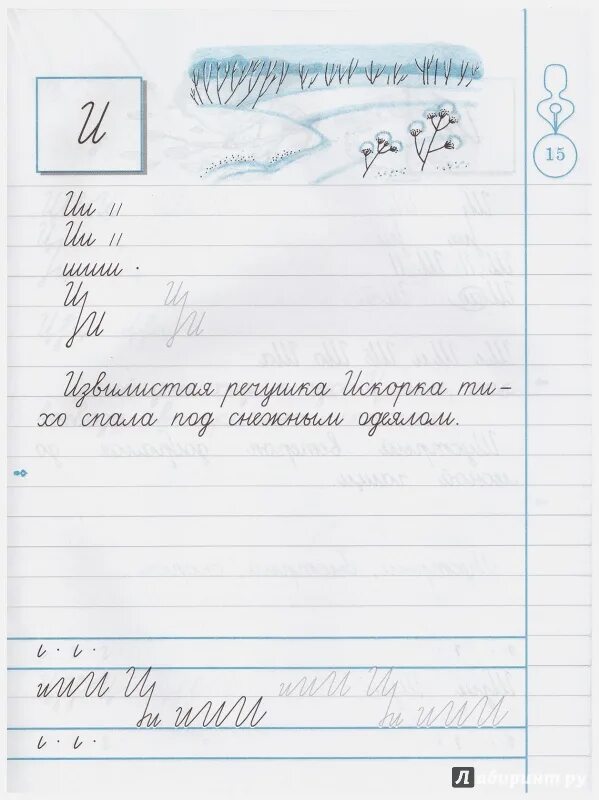 И
15
Ии ıı
Ии ıı
шиш ·
И И
И И
Извилистая речушка Искорка ти-
хо спала под снежным одеялом.
ı · ı ·
иИИ И иИИ И
и иИИ и иИИ
ı · ı ·
Лабиринт.ру